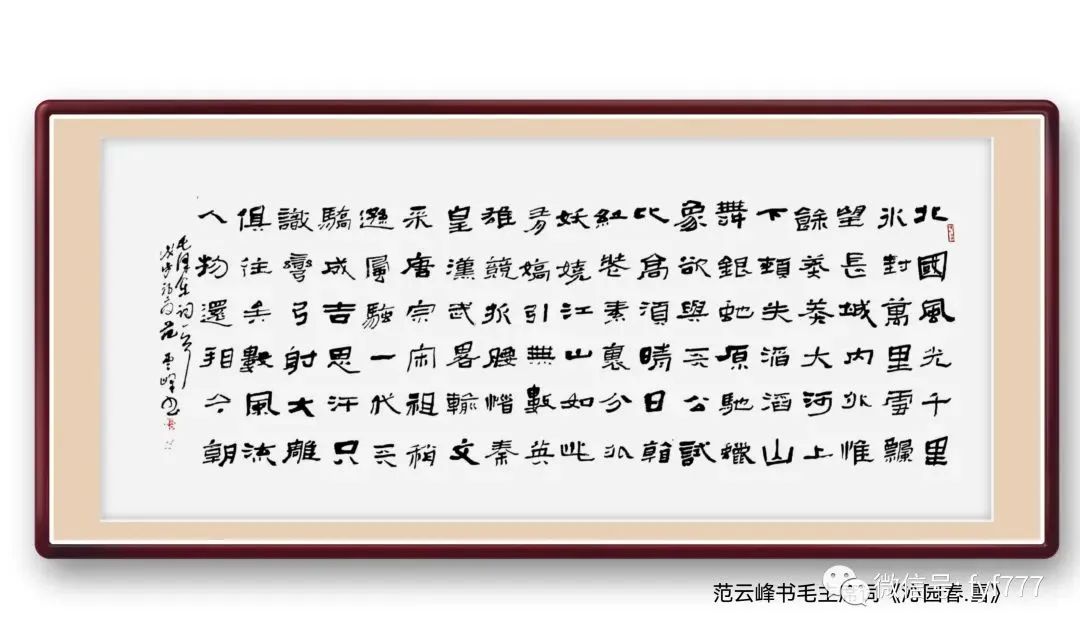 北國風光千里
氷封萬里雪飄
望長城内外惟
餘莽莽大河上
下頓失滔滔山
舞銀蛇原馳蠟
象欲與天公試
比高須晴日看
紅裝素裹分外
妖嬈江山如此
多嬌引無數英
雄競折腰惜秦
皇漢武畧輸文
采唐宗宋祖稍
遜風騷一代天
驕成吉思汗只
識彎弓射大雕
俱往矣數風流
人物還看今朝
毛澤東詞一首
范雲峰書
范云峰书毛主席词《沁园春.雪》
微信号: fyf777